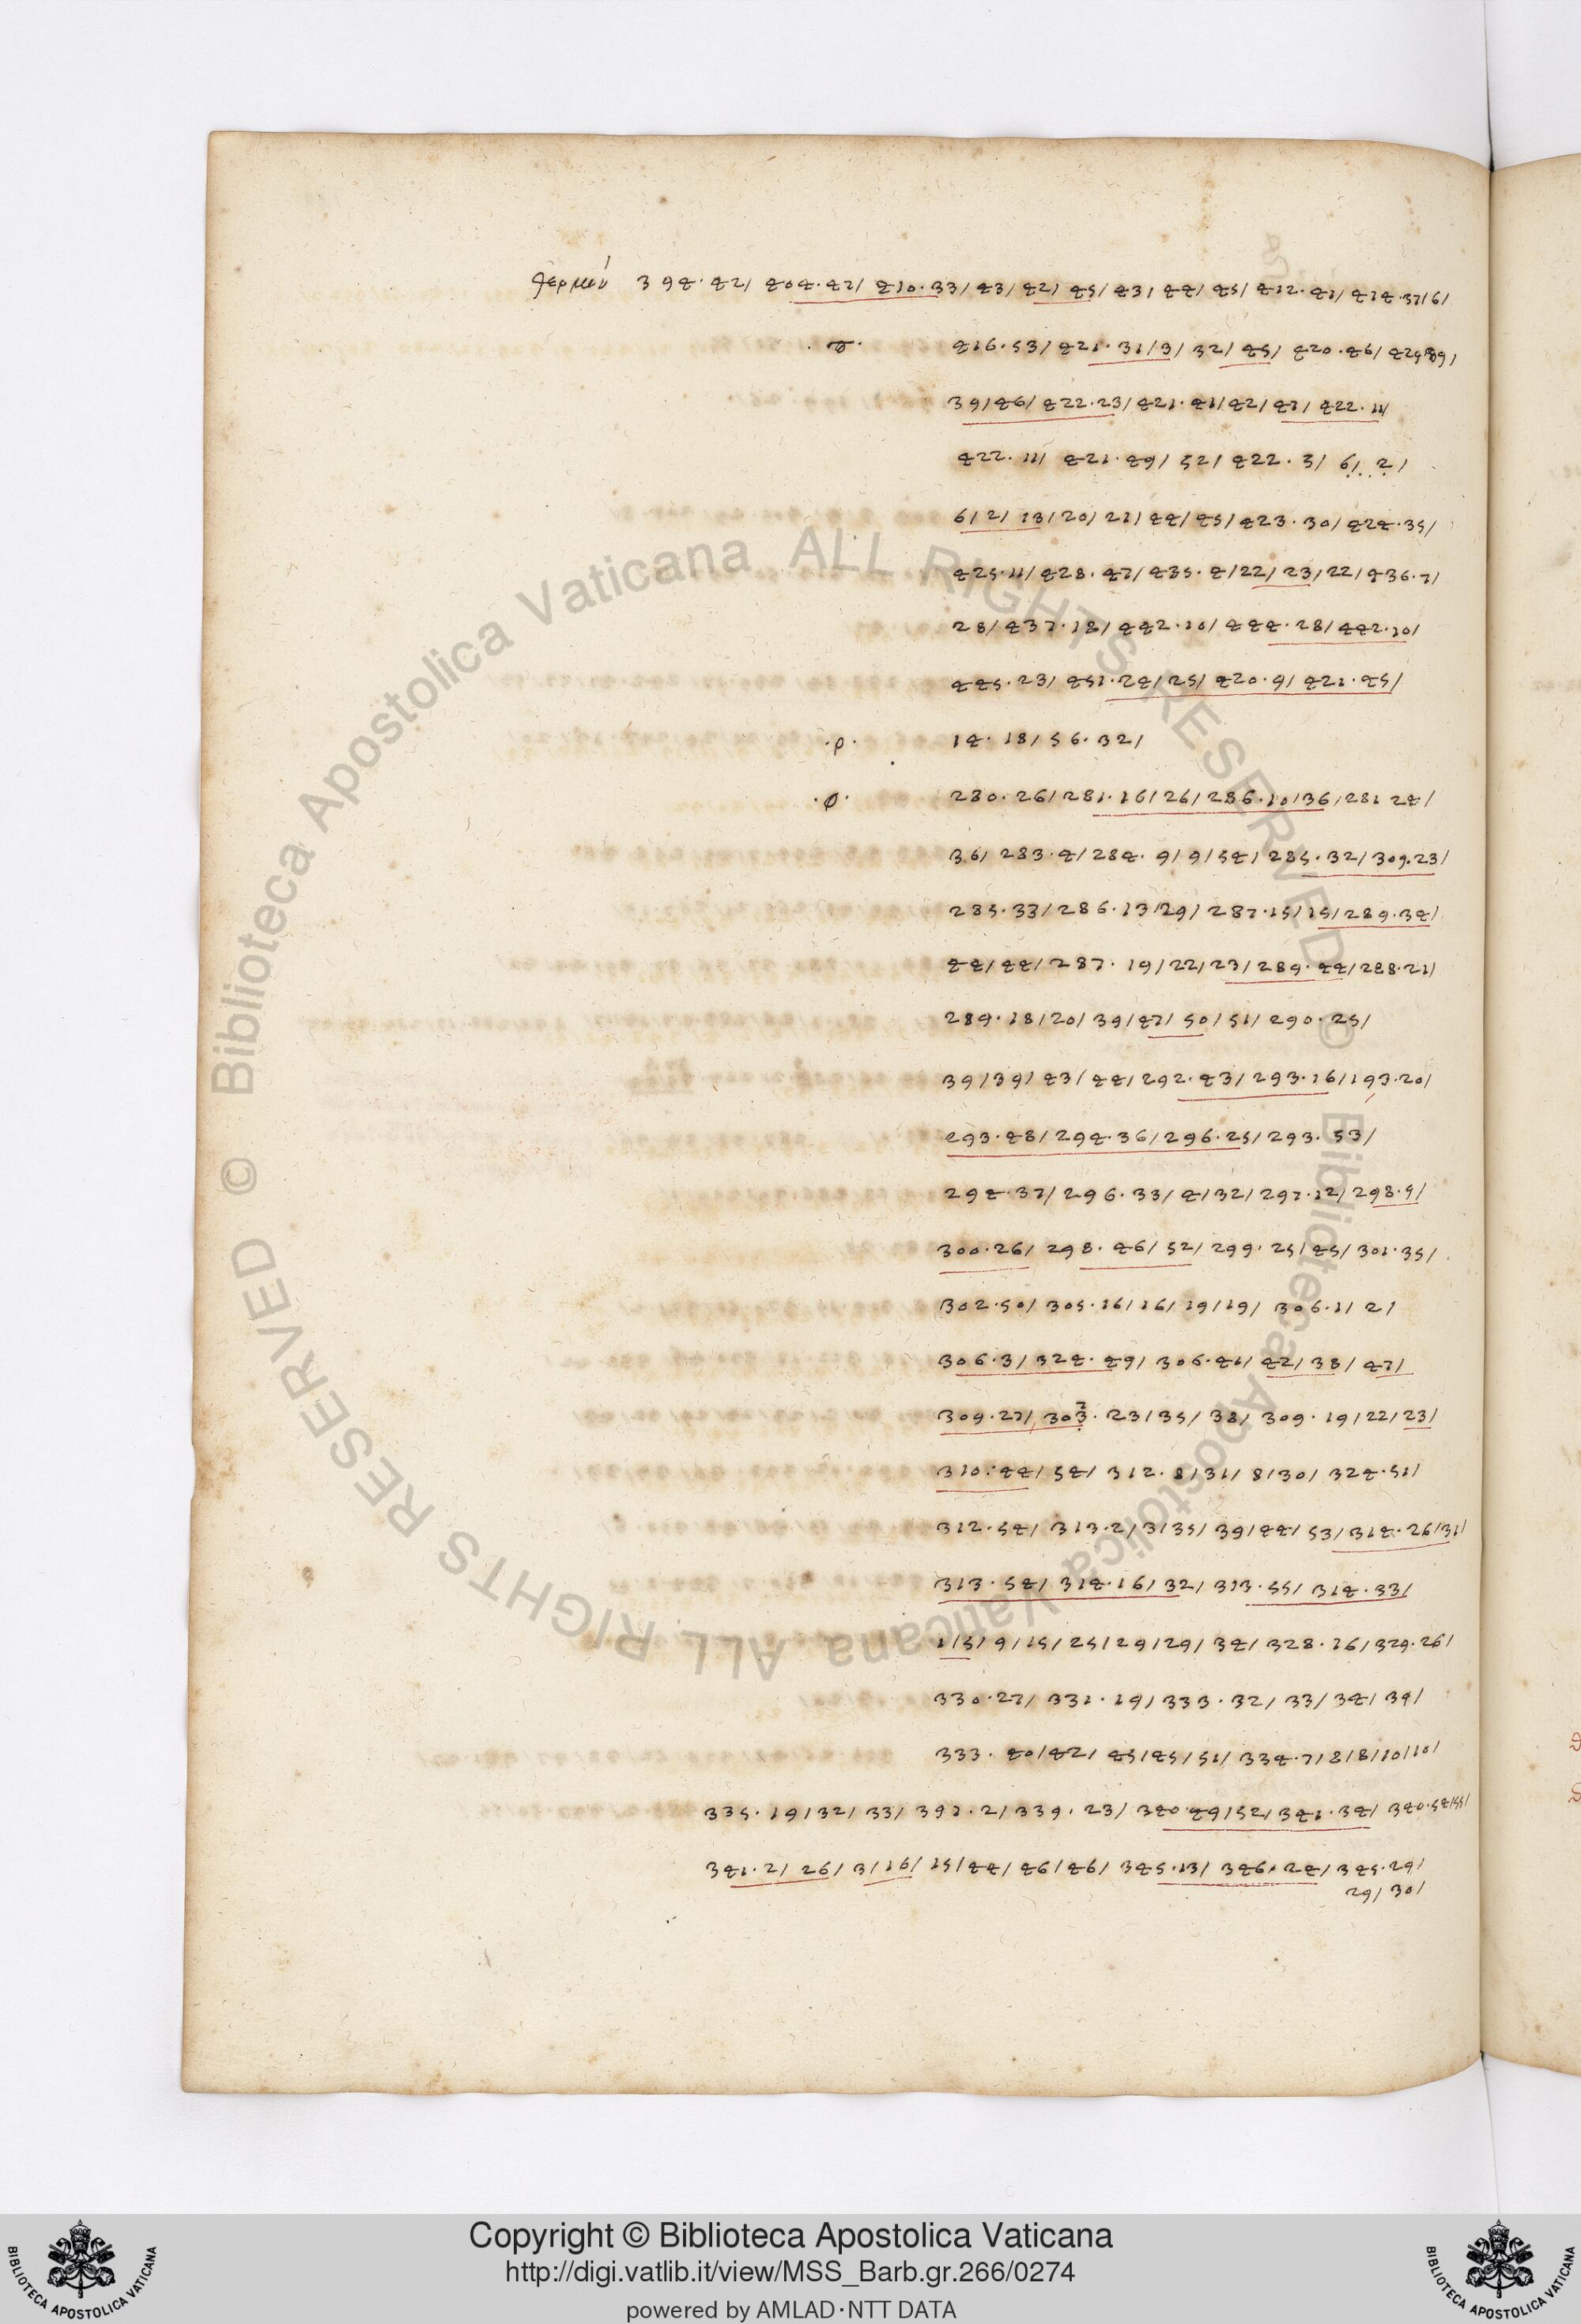 θερμόν 394. 42/ 404. 42/ 410. 33/ 43/ 42/ 45/ 43/ 44/ 45/ 412. 41/ 414. 37/6/
416. 53/ 421. 31/9/ 32/ 45/ 420. 46/
39/46/ 422. 23/ 421. 41/42/ 47/ 422. 11/
422. 11/ 421. 49/ 52/ 422. 3/ 6/ 2/
6/2/ 13/20/ 21/ 44/ 45/ 423. 30/ 424. 35/
425. 11/ 428. 47/ 435. 4/22/ 23/ 22/ 436. 7/
28/ 437. 12/ 442. 10/ 444. 28/ 442. 10/
445. 23/ 451. 24/ 25/ 420. 9/ 421. 45/
.ρ. 14. 18/ 56. 32/
.φ. 280. 26/ 281. 16/ 26/ 286. 10/36/ 281 24/
36/ 283. 4/ 284. 9/ 9/ 54/ 285. 32/ 309. 23/
285. 33/ 286. 13/29/ 287. 15/ 15/ 289. 34/
44/ 44/ 287. 19/ 22/ 23/ 289. 44/ 288. 21/
289. 18/20/ 39/ 47/ 50/ 51/ 290. 25/
39/39/ 43/ 44/ 292. 43/ 293. 16/ 193. 20/
293. 48/ 294. 36/ 296. 25/ 293. 53/
294. 37/ 296. 33/ 4/ 32/ 297. 12/ 298. 9/
300. 26/ 298. 46/ 52/ 299. 25/ 45/ 301. 35/
302. 50/ 305. 16/ 16/ 19/ 19/ 306. 1/ 2/
306. 3/ 324. 49/ 306. 41/ 42/ 38/ 47/
309. 27/ 303. 23/ 35/ 38/ 309. 19/ 22/ 23/
310. 44/ 54/ 312. 8/ 31/ 8/ 30/ 324. 51/
312. 54/ 313. 2/ 3/ 35/ 39/ 44/ 53/ 314. 26/31/
313. 54/ 314. 16/ 32/ 313. 55/ 314. 33/
1/ 5/ 9/ 15/ 25/ 29/ 29/ 34/ 328. 16/ 329. 26/
330. 27/ 331. 19/ 333. 32/ 33/ 34/ 39/
333. 40/ 42/ 45/ 45/ 51/ 334. 7/ 8/ 8/ 10/ 10/
335. 19/ 32/ 33/ 391. 2/ 339. 23/ 340. 49/ 52/ 341. 34/ 340. 54/55/
341. 2/ 26/ 3/ 16/ 15/ 44/ 46/ 46/ 345. 13/ 346. 24/ 345. 29/
29/ 30/
© Biblioteca Apostolica Vaticana ALL RIGHTS RESERVED
© Biblioteca Apostolica Vaticana ALL RIGHTS RESERVED
Copyright © Biblioteca Apostolica Vaticana
http://digi.vatlib.it/view/MSS_Barb.gr.266/0274
powered by AMLAD·NTT DATA
BIBLIOTECA APOSTOLICA VATICANA
BIBLIOTECA APOSTOLICA VATICANA